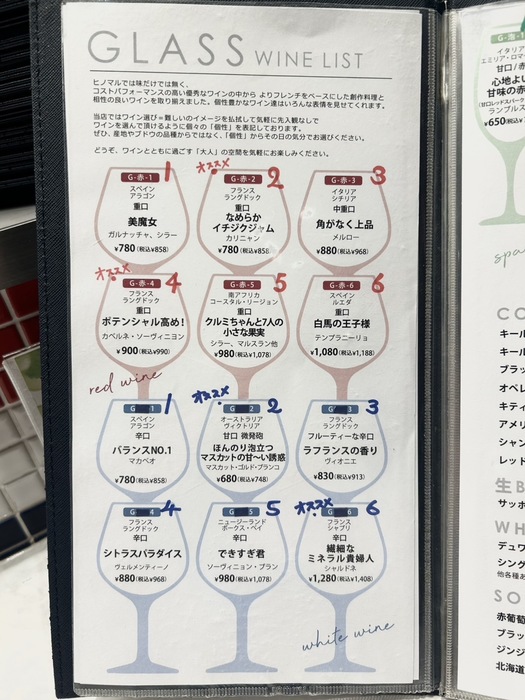 GLASS WINE LIST
ヒノマルでは味だけでは無く、
コストパフォーマンスの高い優秀なワインの中から よりフレンチをベースにした創作料理と
相性の良いワインを取り揃えました。個性豊かなワイン達はいろんな表情を見せてくれます。
当店ではワイン選び=難しいのイメージを払拭して気軽に先入観なしで
ワインを選んで頂けるように個々の「個性」を表記しております。
ぜひ、産地やブドウの品種からではなく、「個性」からその日の気分でお選びください。
どうぞ、ワインとともに過す「大人」の空間を気軽にお楽しみください。
G-赤-1 1
スペイン
アラゴン
重口
美魔女
ガルナッチャ、シラー
¥780(税込¥858)
オススメ
G-赤-2 2
フランス
ラングドック
重口
なめらか
イチジクジャム
カリニャン
¥780(税込¥858)
G-赤-3 3
イタリア
シチリア
中重口
角がなく上品
メルロー
¥880(税込¥968)
オススメ
G-赤-4 4
フランス
ラングドック
重口
ポテンシャル高め!
カベルネ・ソーヴィニヨン
¥900(税込¥990)
G-赤-5 5
南アフリカ
コースタル・リージョン
重口
クルミちゃんと7人の
小さな果実
シラー、マルスラン他
¥980(税込¥1,078)
G-赤-6 6
スペイン
ルエダ
重口
白馬の王子様
テンプラニーリョ
¥1,080(税込¥1,188)
red wine
G 1 1
スペイン
アラゴン
辛口
バランスNO.1
マカベオ
¥780(税込¥858)
オススメ
G 2 2
オーストラリア
ヴィクトリア
甘口 微発砲
ほんのり泡立つ
マスカットの甘〜い誘惑
マスカット・ゴルド・ブランコ
¥680(税込¥748)
G 3 3
フランス
ラングドック
フルーティーな辛口
ラフランスの香り
ヴィオニエ
¥830(税込¥913)
G 4 4
フランス
ラングドック
辛口
シトラスパラダイス
ヴェルメンティーノ
¥880(税込¥968)
G 5 5
ニュージーランド
ホークス・ベイ
辛口
できすぎ君
ソーヴィニョン・ブラン
¥980(税込¥1,078)
オススメ
G 6 6
フランス
シャブリ
辛口
繊細な
ミネラル貴婦人
シャルドネ
¥1,280(税込¥1,408)
white wine
G-泡-1
イタリア
エミリア・ロマ
甘口/赤
心地よい
甘味の赤
ランブルス
¥650(税込¥
spa
CO
キール
キール
ブラッ
オペレ
キティ
アメリ
シャン
レッド
生B
サッポ
WH
デュワ
シング
他各種あ
SO
赤葡萄
ブラッ
ジンジ
北海道